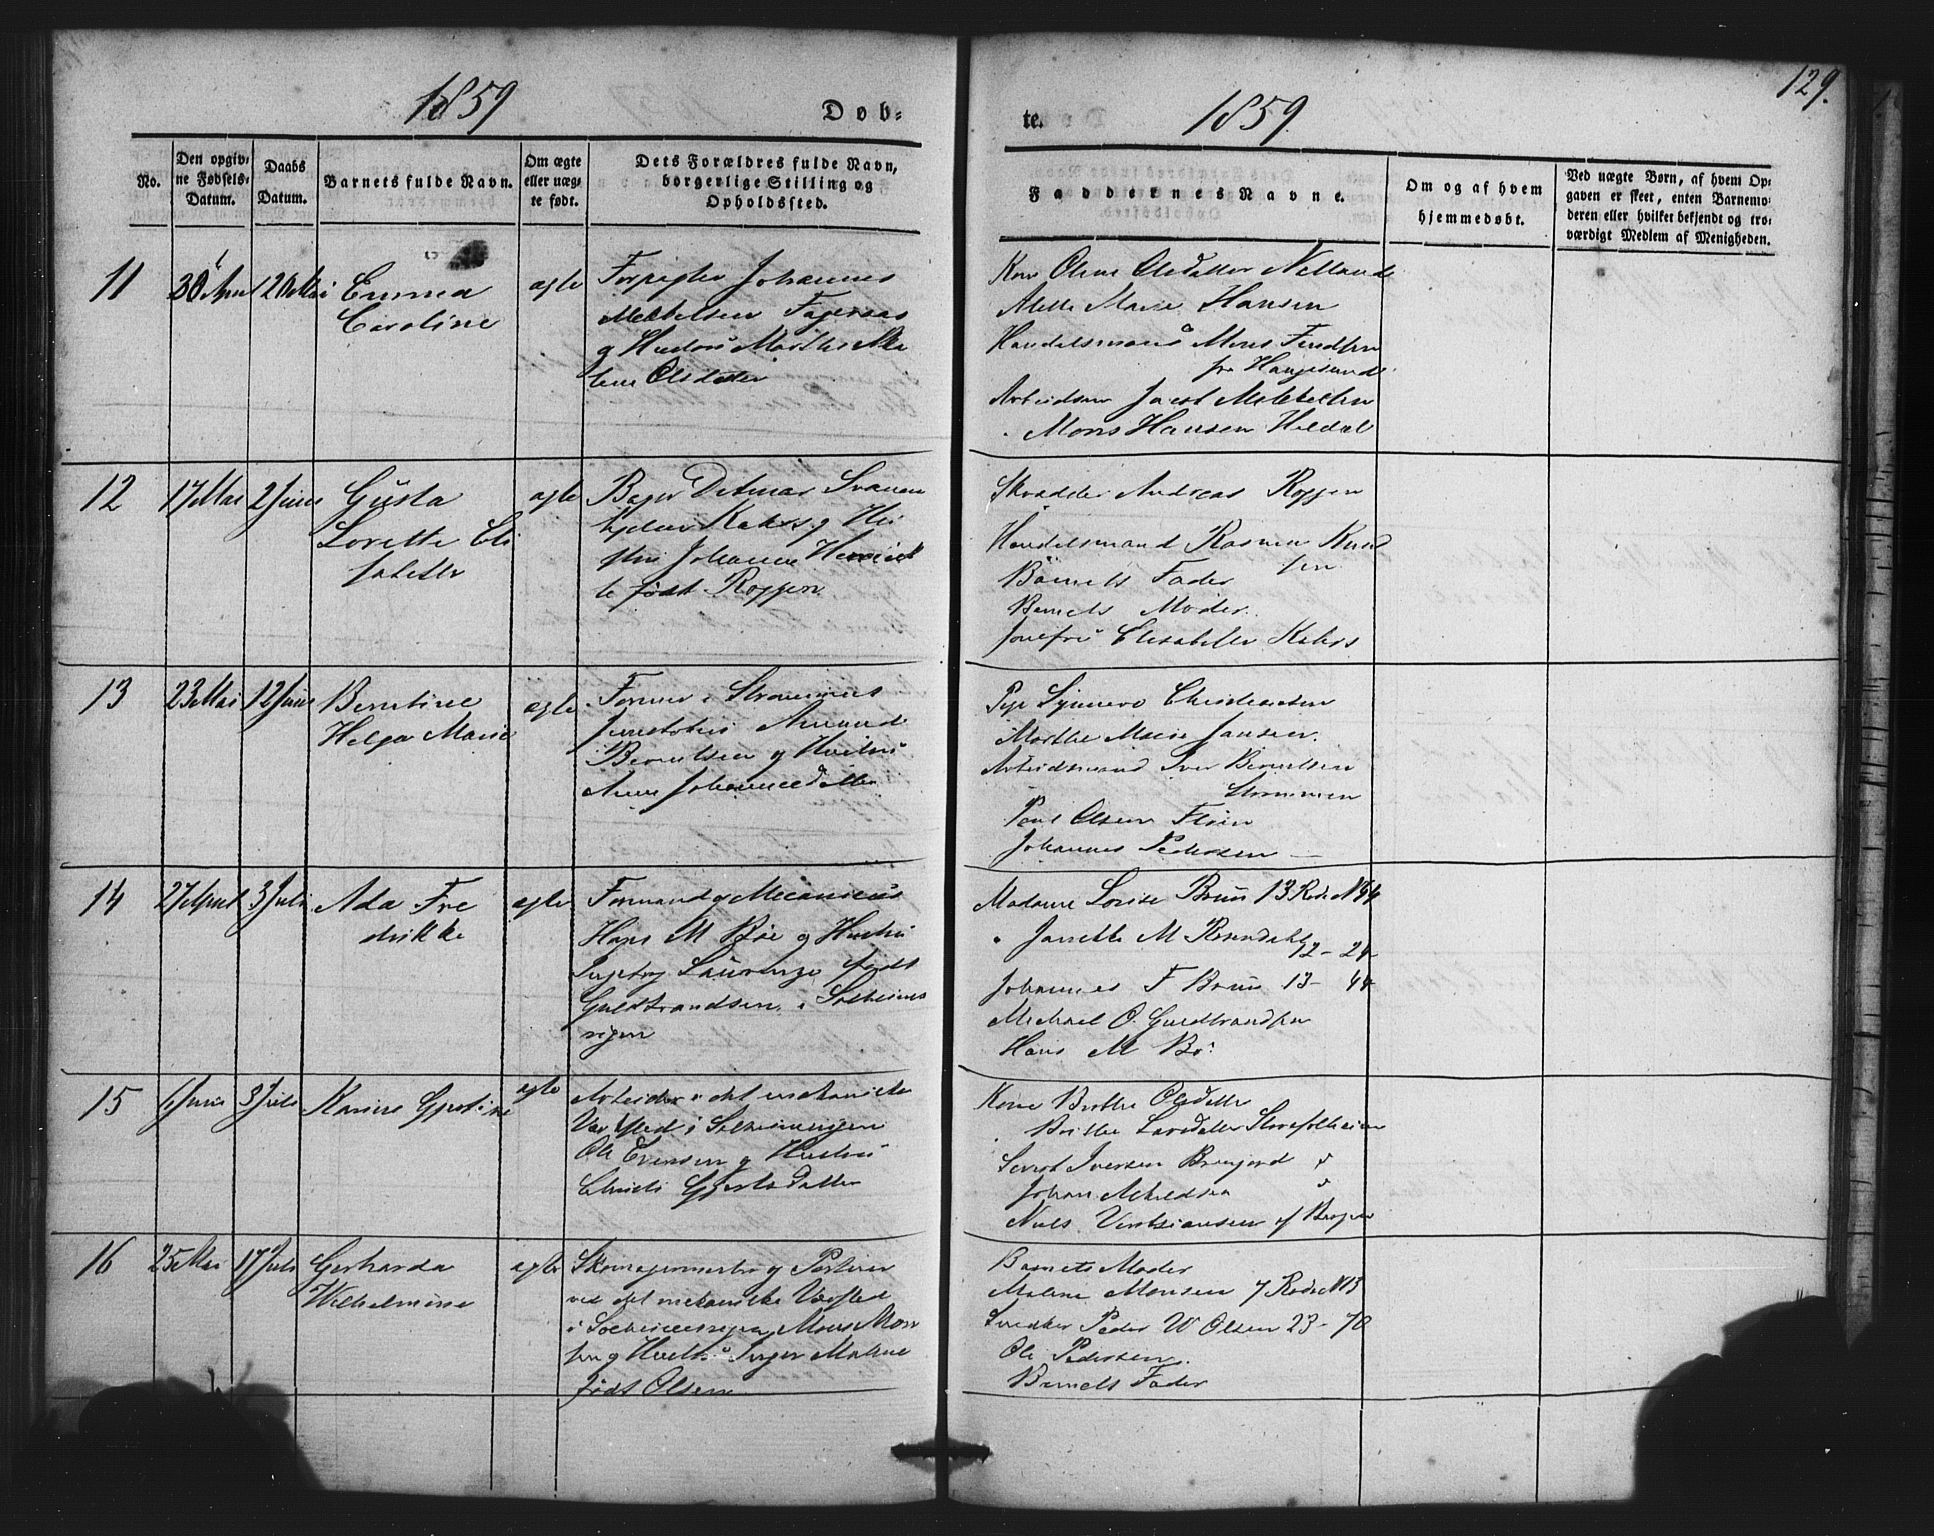 1859
Døb-
No.
Den opgiv-
ne Fødsels-
Datum.
Daabs
Datum.
Barnets fulde Navn.
Om ægte
eller uæg-
te født.
Dets Forældres fulde Navn,
borgerlige Stilling og
Opholdssted.
11
30 April
20 Mai
Emma
Caroline
ægte
Johannes
Mikkelsen Fageraas
g Hustru Marthe Ma
lene Olsdatter
12
17 Mai
2 Juni
Gusta
Lorette Eli
sabeth
ægte
Bager Ditmar Svanen
Kahrs g Hu
stru Johanne Henriet
te født Roggen
13
23 Mai
12 Juni
Berntine
Helga Marie
ægte
Former i Strømmens
Amund
Berntsen g Hustru
Anne Johannesdatter
14
27 April
3 Juli
Ada Fre
drikke
ægte
Formand g Mecanicus
Hans M Bøe g Hustru
Ingeborg Laurenze født
Guldbrandsen i Solheims
vigen
15
6 Juni
3 Juli
Karine Gjertine
ægte
Arbeider i det mekaniske
Værksted i Solheimsvigen
Ole Evensen g Hustru
Christi Gjertsdatter
16
25 Mai
17 Juli
Gerharda
Wilhelmine
ægte
Skomagermester g Portner
ved det mekaniske Værksted
i Solheimsvigen Mons Mon
sen g Hustru Inger Malene
født Olsen
129.
te.
1859.
Faddernes Navne.
Om og af hvem
hjemmedøbt.
Ved uægte Børn, af hvem Op-
gaven er skeet, enten Barnemo-
deren eller hvilket bekjendt og tro-
værdigt Medlem af Menigheden.
Kone Oline Olsdatter Nelland
Mette Marie Hansen
Handelsmand Mons Knudsen
fra Haugesund
Arbeidsm Jacob Mikkelsen
Mons Hansen Hildal
Skrædder Andreas Roggen
Handelsmand Rasmus Knud
sen
Barnets Fader
Barnets Moder.
Jomfru Elisabeth Kahrs
Pige Synneve Christensen
Marthe Marie Jansen.
Arbeidsmand Iver Berntsen
Strømmen
Paul Olsen Fløen
Johannes Pedersen
Madame Lovise Bruun 13 Rode N 44
Janette M Rosendahl
12 - 24
Johannes F Bruun 13 - 44
Michael O. Guldbrandsen
Hans M Bø
Kone Birthe Olsdatter
Brithe Larsdatter Storesolheim
Sevrot Iversen
Johan
Niels af Bergen
Barnets Moder
Malene Monsen 7 Rode N 13
Snedker Peder W Olsen 23 - 70
Ole Pedersen.
Barnets Fader